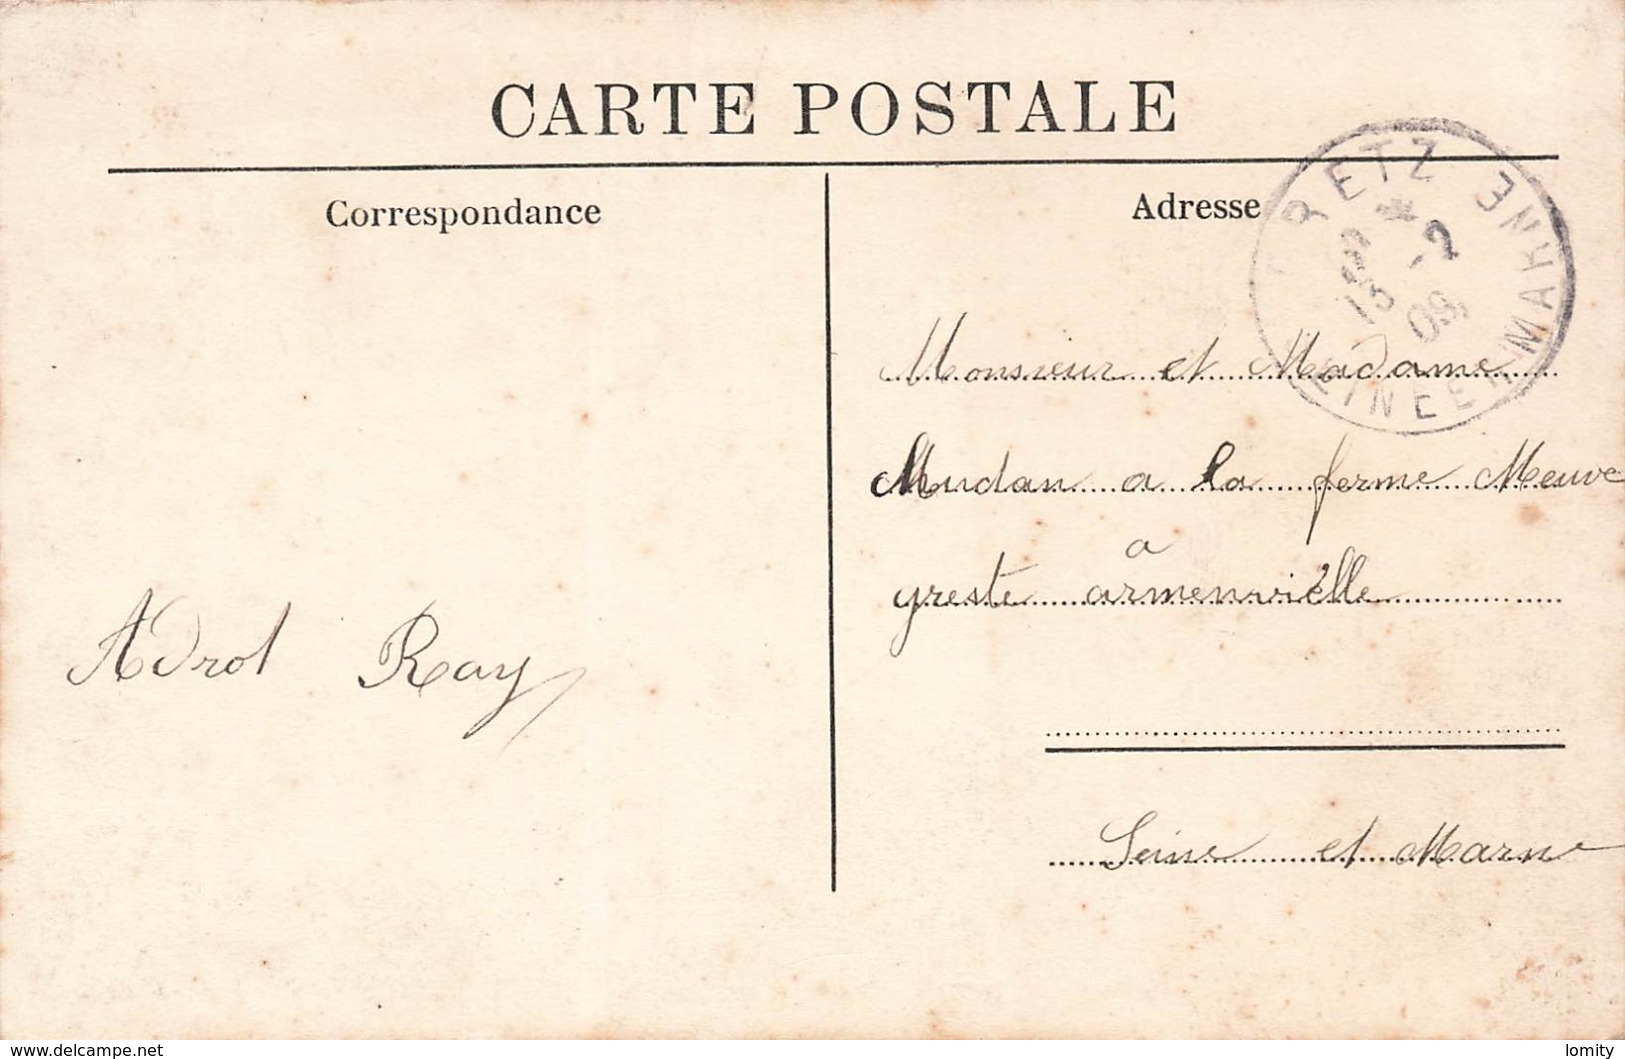 CARTE POSTALE
Correspondance
Adresse
RETZ
SEINE ET MARNE
13 -2
09
Monsieur et Madame
Mudan a la ferme Meuve
a
greste armenvièlle
Adrot Ray
Seine et Marne
www.delcampe.net
lomity